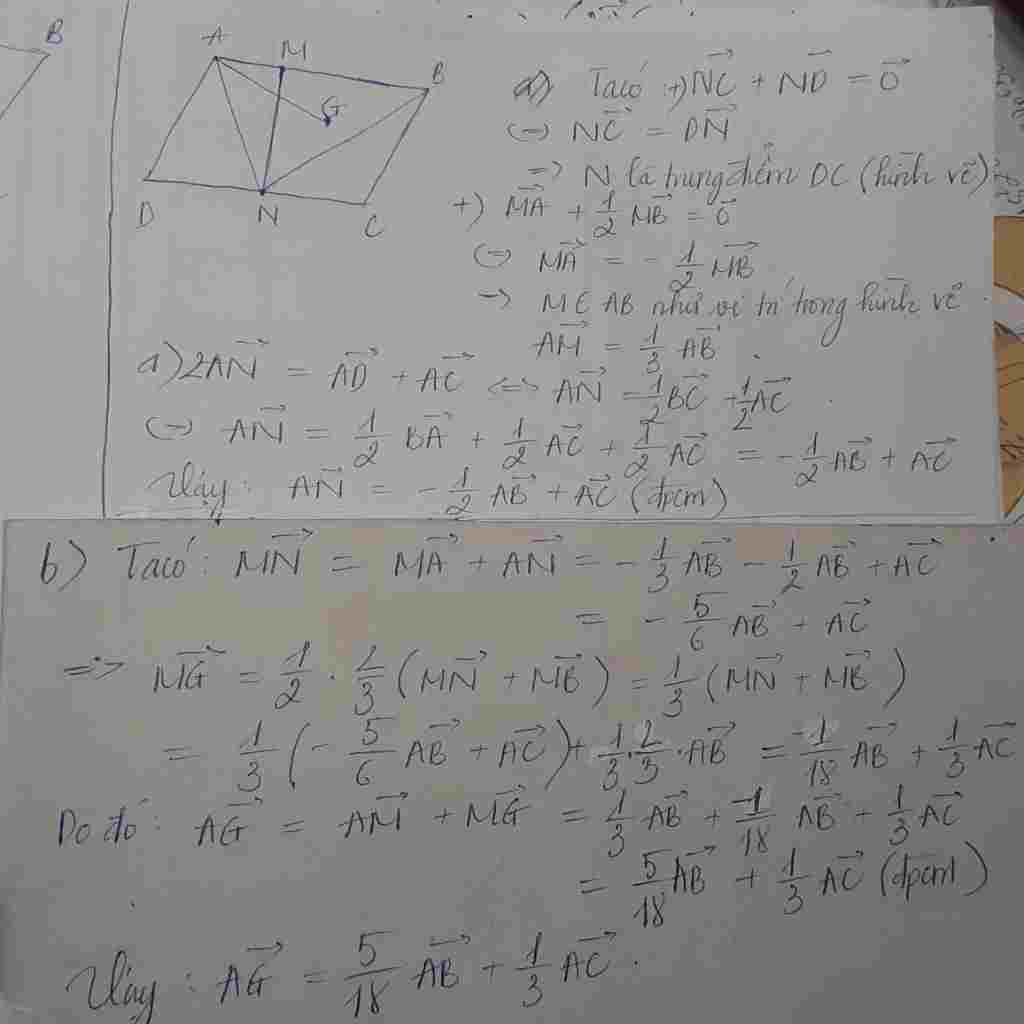 B
A
M
B
G
D
N
C
a) Ta có: +) $\overrightarrow{NC} + \overrightarrow{ND} = \vec{0}$
(=) $\overrightarrow{NC} = \overrightarrow{DN}$
=> N là trung điểm DC (hình vẽ)
+) $\overrightarrow{MA} + \frac{1}{2}\overrightarrow{MB} = \vec{0}$
(=) $\overrightarrow{MA} = -\frac{1}{2}\overrightarrow{MB}$
-> M ∈ AB như vị trí trong hình vẽ
$\overrightarrow{AM} = \frac{1}{3}\overrightarrow{AB}$.
a) $2\overrightarrow{AN} = \overrightarrow{AD} + \overrightarrow{AC}$ <=> $\overrightarrow{AN} = \frac{1}{2}\overrightarrow{BC} + \frac{1}{2}\overrightarrow{AC}$.
(=) $\overrightarrow{AN} = \frac{1}{2}\overrightarrow{BA} + \frac{1}{2}\overrightarrow{AC} + \frac{1}{2}\overrightarrow{AC} = -\frac{1}{2}\overrightarrow{AB} + \overrightarrow{AC}$
Vậy: $\overrightarrow{AN} = -\frac{1}{2}\overrightarrow{AB} + \overrightarrow{AC}$ (đpcm)
b) Ta có: $\overrightarrow{MN} = \overrightarrow{MA} + \overrightarrow{AN} = -\frac{1}{3}\overrightarrow{AB} - \frac{1}{2}\overrightarrow{AB} + \overrightarrow{AC}$
$= -\frac{5}{6}\overrightarrow{AB} + \overrightarrow{AC}$
=> $\overrightarrow{MG} = \frac{1}{2} \cdot \frac{2}{3}(\overrightarrow{MN} + \overrightarrow{MB}) = \frac{1}{3}(\overrightarrow{MN} + \overrightarrow{MB})$
$= \frac{1}{3}(-\frac{5}{6}\overrightarrow{AB} + \overrightarrow{AC}) + \frac{1}{3} \cdot \frac{2}{3} \cdot \overrightarrow{AB} = \frac{-1}{18}\overrightarrow{AB} + \frac{1}{3}\overrightarrow{AC}$
Do đó: $\overrightarrow{AG} = \overrightarrow{AM} + \overrightarrow{MG} = \frac{1}{3}\overrightarrow{AB} + \frac{-1}{18}\overrightarrow{AB} + \frac{1}{3}\overrightarrow{AC}$
$= \frac{5}{18}\overrightarrow{AB} + \frac{1}{3}\overrightarrow{AC}$ (đpcm)
Vậy: $\overrightarrow{AG} = \frac{5}{18}\overrightarrow{AB} + \frac{1}{3}\overrightarrow{AC}$.